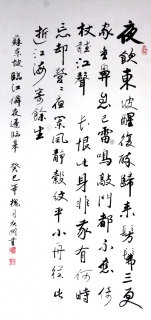 夜飲東坡醒復醉歸來髣髴三更
家童鼻息已雷鳴敲門都不應倚
杖聽江聲長恨此身非我有何時
忘却營營夜闌風靜縠紋平小舟從此
逝江海寄餘生
蘇東坡臨江僊夜歸臨皋 癸巳年槐月